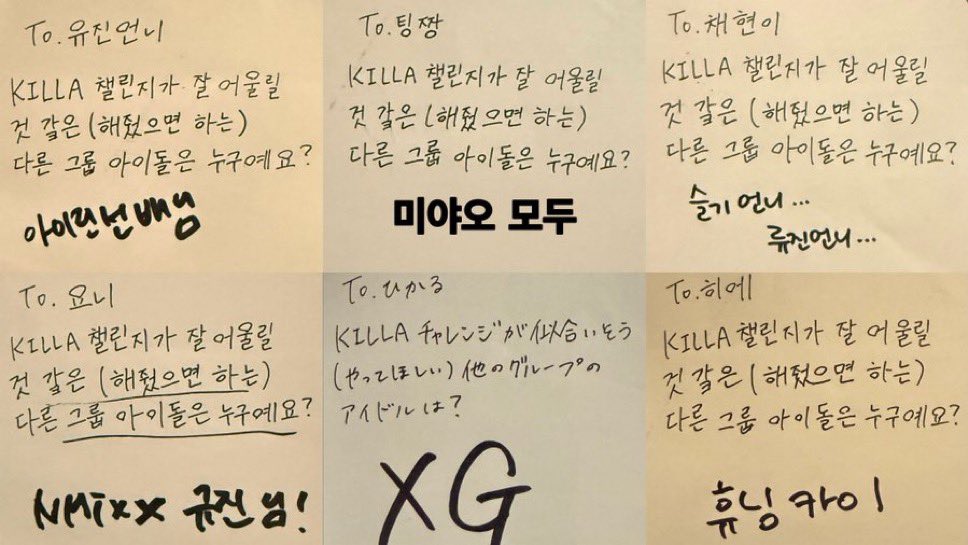 To. 유진언니
KILLA 챌린지가 잘 어울릴
것 같은 (해줬으면 하는)
다른 그룹 아이돌은 누구예요?
아이린선배님
To. 팅짱
KILLA 챌린지가 잘 어울릴
것 같은 (해줬으면 하는)
다른 그룹 아이돌은 누구예요?
미야오 모두
To. 채현이
KILLA 챌린지가 잘 어울릴
것 같은 (해줬으면 하는)
다른 그룹 아이돌은 누구예요?
슬기 언니...
류진언니...
To. 요니
KILLA 챌린지가 잘 어울릴
것 같은 (해줬으면 하는)
다른 그룹 아이돌은 누구예요?
NMIXX 규진님!
To. ひかる
KILLA チャレンジが似合いそう
(やってほしい) 他のグループの
アイドルは?
XG
To. 히에
KILLA 챌린지가 잘 어울릴
것 같은 (해줬으면 하는)
다른 그룹 아이돌은 누구예요?
휴닝카이